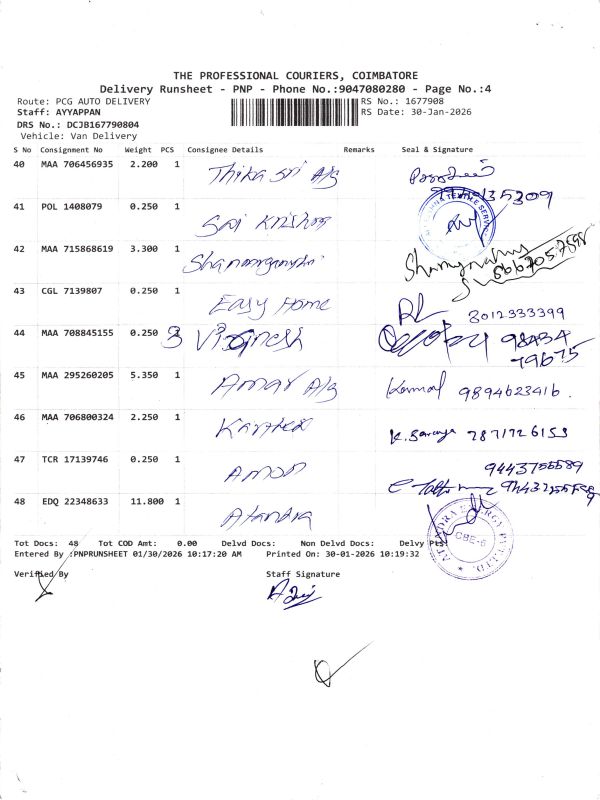 THE PROFESSIONAL COURIERS, COIMBATORE
Delivery Runsheet - PNP - Phone No.:9047080280 - Page No.:4
Route: PCG AUTO DELIVERY RS No.: 1677908
Staff: AYYAPPAN RS Date: 30-Jan-2026
DRS No.: DCJB167790804
Vehicle: Van Delivery
S No Consignment No Weight PCS Consignee Details Remarks Seal & Signature
40 MAA 706456935 2.200 1 Thika Sri A/g
41 POL 1408079 0.250 1 Sai Krishna
42 MAA 715868619 3.300 1
43 CGL 7139807 0.250 1 Easy Home 8012333399
44 MAA 708845155 0.250 3 Vignesh 98434
79675
45 MAA 295260205 5.350 1 Amar A/g Kamal 9894623416.
46 MAA 706800324 2.250 1 K. Saranya 7871726153
47 TCR 17139746 0.250 1 Amon 9443755589
48 EDQ 22348633 11.800 1 Atandra
ATANDRA ENERGY PVT.LTD. CBE-6
Tot Docs: 48 Tot COD Amt: 0.00 Delvd Docs: Non Delvd Docs: Delvy Pts:
Entered By :PNPRUNSHEET 01/30/2026 10:17:20 AM Printed On: 30-01-2026 10:19:32
Verified By Staff Signature